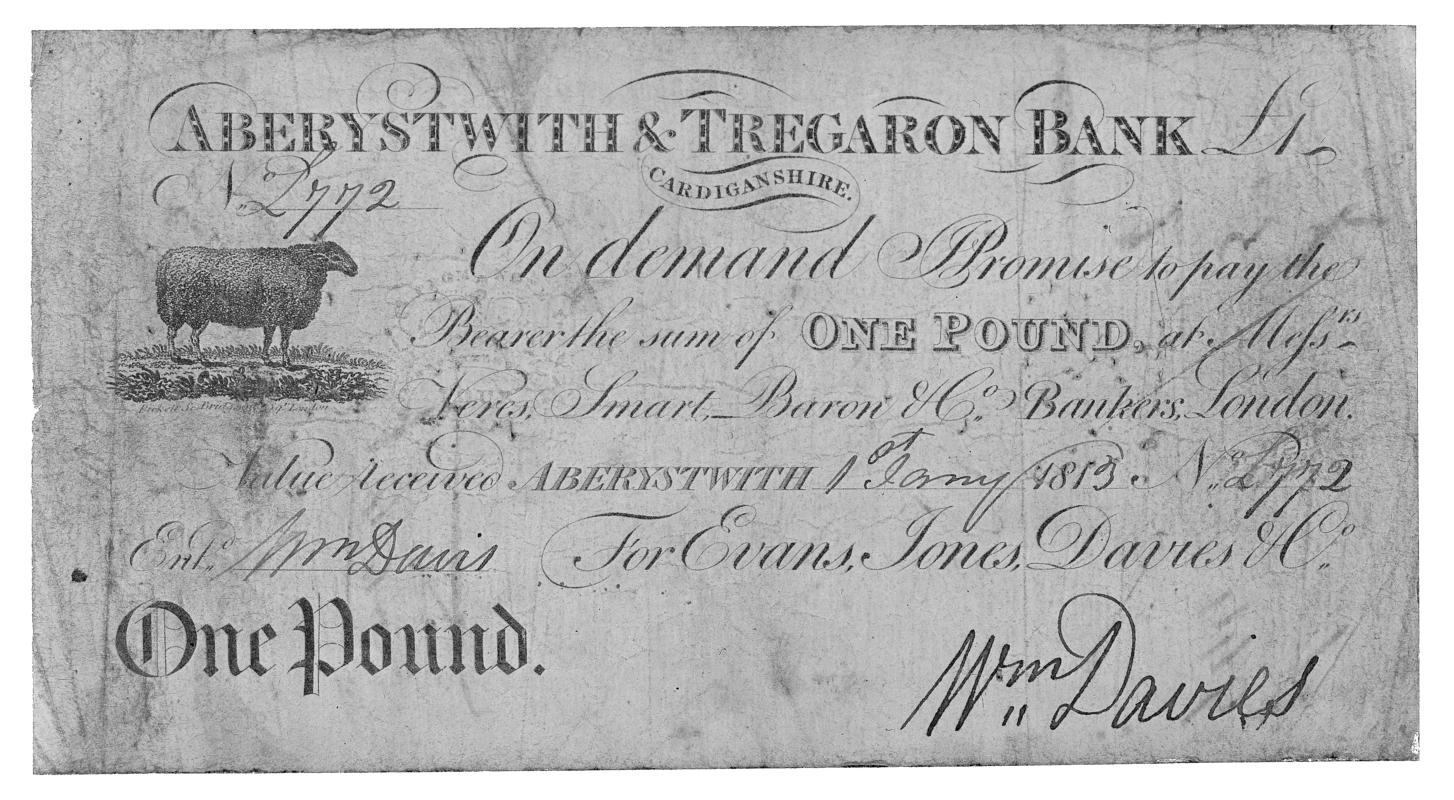 ABERYSTWITH & TREGARON BANK £1
CARDIGANSHIRE.
No. L772
On demand I Promise to pay the
Bearer the sum of ONE POUND, at Messrs
Veres, Smart, Baron & Co. Bankers, London.
Value received ABERYSTWITH 1st Jany 1813 No. L772
Entd. Wm Davis For Evans, Jones, Davies & Co.
One Pound.
Wm Davies